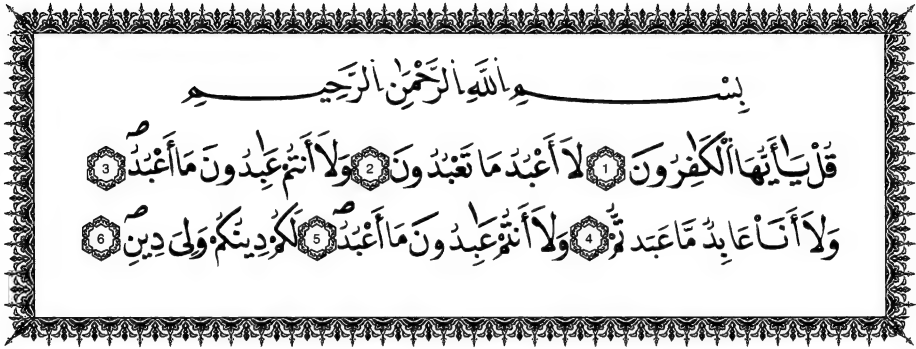 بِسْمِ اللَّهِ الرَّحْمَٰنِ الرَّحِيمِ
قُلْ يَٰٓأَيُّهَا ٱلْكَٰفِرُونَ 1 لَآ أَعْبُدُ مَا تَعْبُدُونَ 2 وَلَآ أَنتُمْ عَٰبِدُونَ مَآ أَعْبُدُ 3
وَلَآ أَنَا۠ عَابِدٌ مَّا عَبَدتُّمْ 4 وَلَآ أَنتُمْ عَٰبِدُونَ مَآ أَعْبُدُ 5 لَكُمْ دِينُكُمْ وَلِىَ دِينِ 6